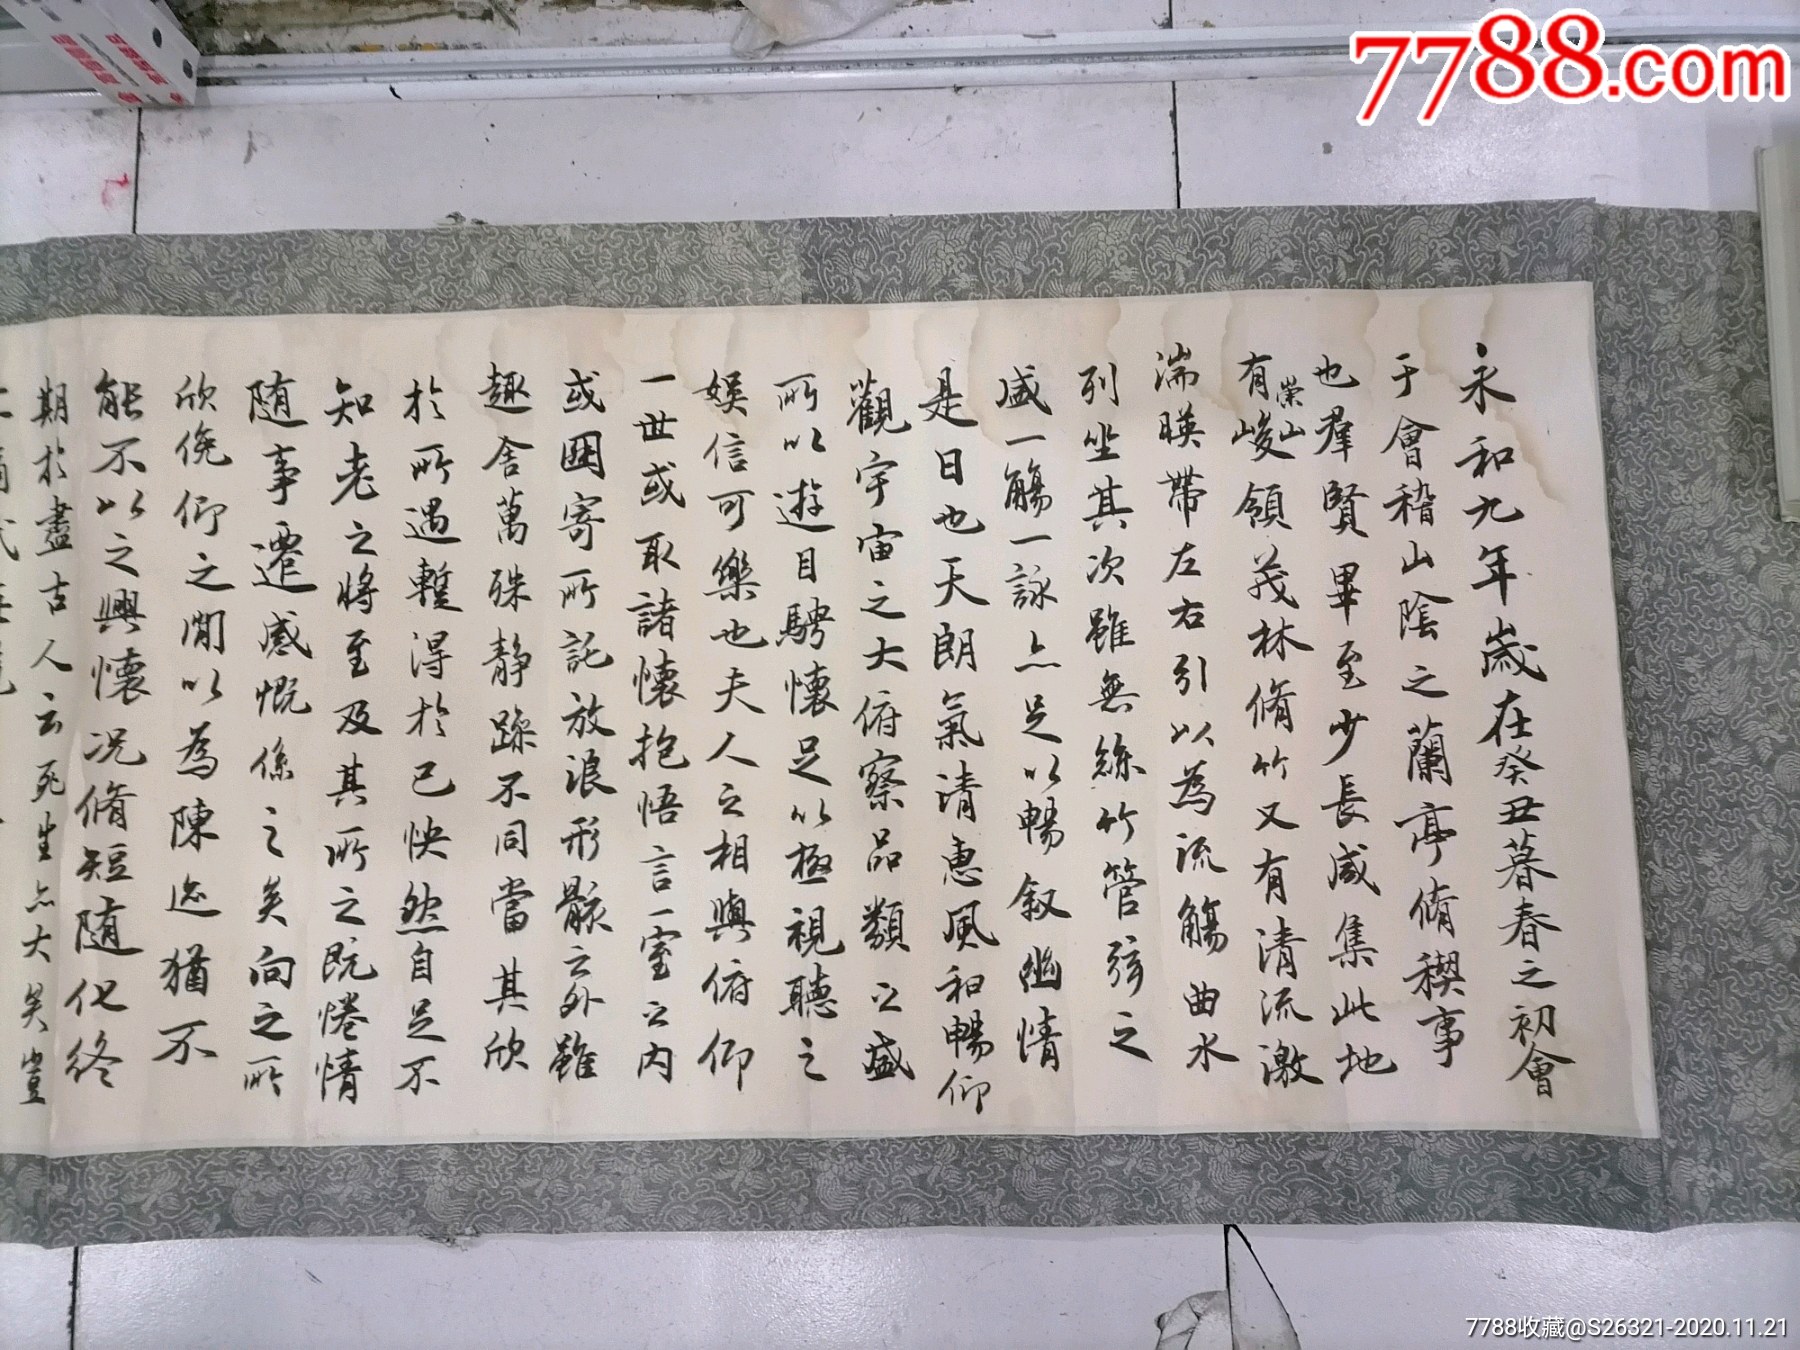 7788.com
永和九年歲在癸丑暮春之初會
于會稽山陰之蘭亭脩稧事
也羣賢畢至少長咸集此地
有崇山峻領茂林脩竹又有清流激
湍暎帶左右引以為流觴曲水
列坐其次雖無絲竹管弦之
盛一觴一詠亦足以暢敘幽情
是日也天朗氣清惠風和暢仰
觀宇宙之大俯察品類之盛
所以遊目騁懷足以極視聽之
娛信可樂也夫人之相與俯仰
一世或取諸懷抱悟言一室之內
或因寄所託放浪形骸之外雖
趣舍萬殊静躁不同當其欣
於所遇暫得於己怏然自足不
知老之將至及其所之既惓情
随事遷感慨係之矣向之所
欣俛仰之閒以為陳迹猶不
能不以之興懷況脩短随化終
期於盡古人云死生亦大矣豈
7788收藏@S26321-2020.11.21